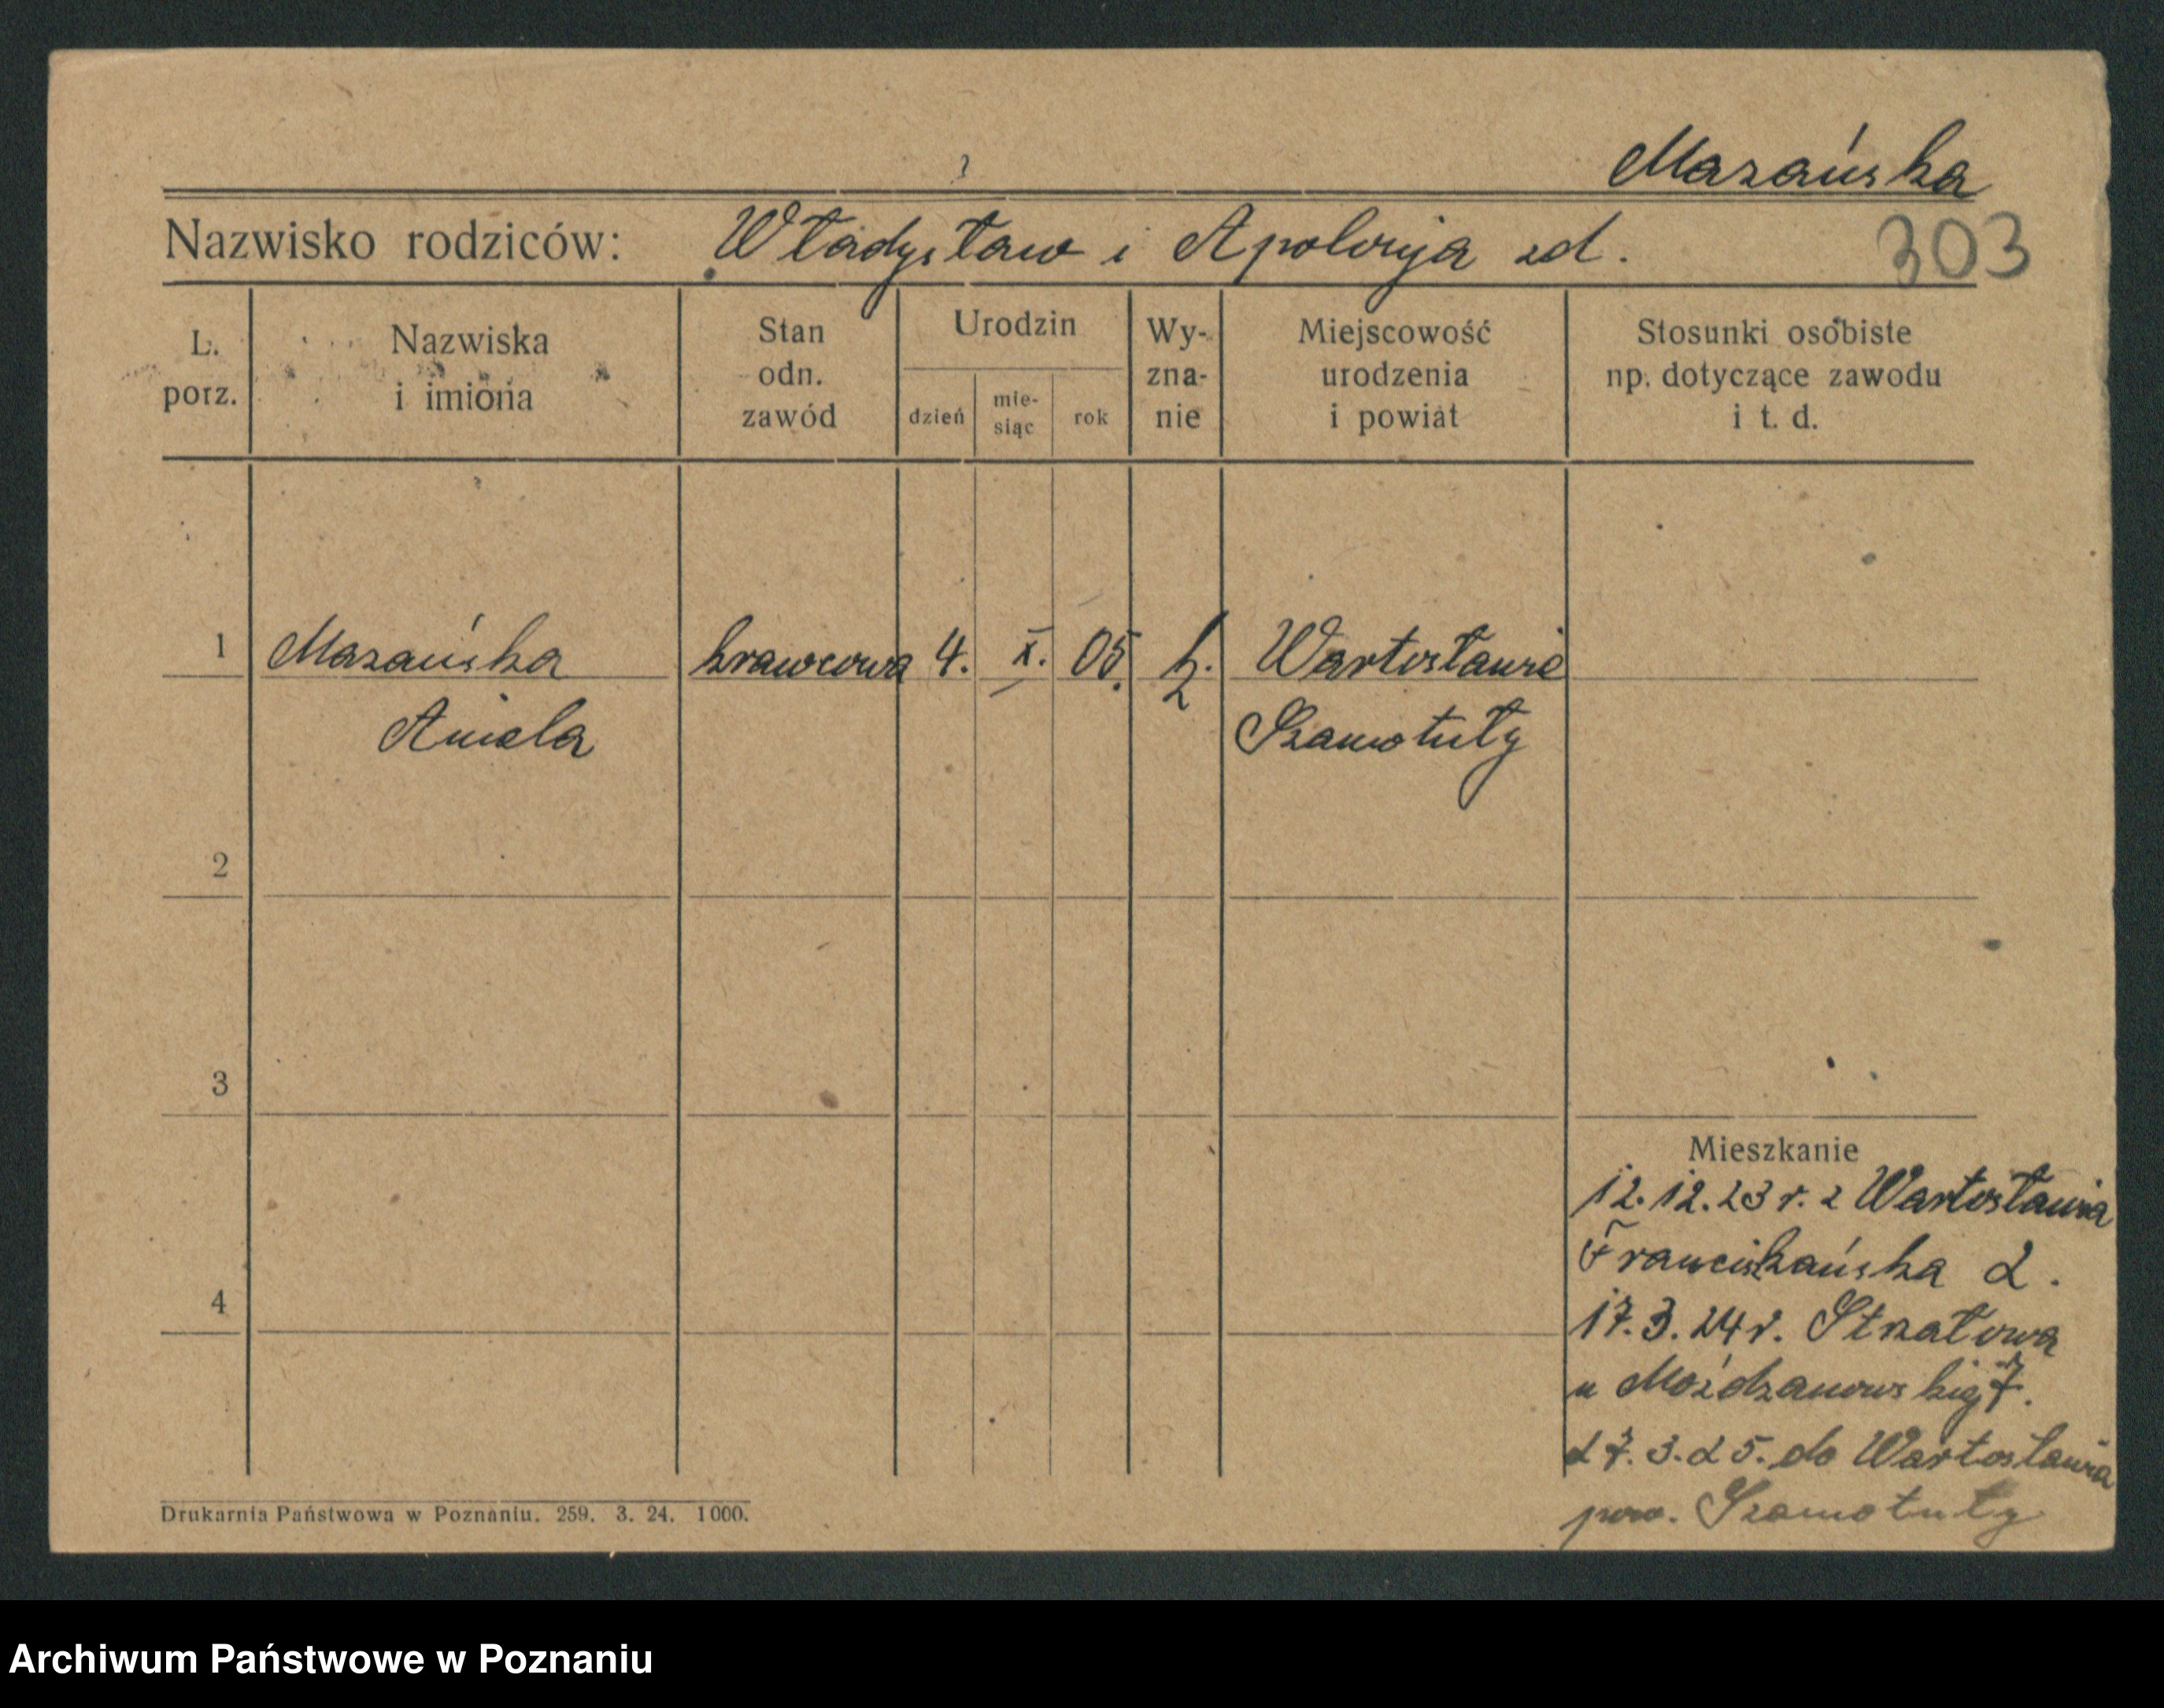 Mazańska
Nazwisko rodziców: Władysław i Apolonja zd.
303
L. porz.
Nazwiska i imiona
Stan odn. zawód
Urodzin
dzień
mie- siąc
rok
Wy- zna- nie
Miejscowość urodzenia i powiat
Stosunki osobiste np. dotyczące zawodu i t. d.
1 Mazańska krawcowa 4. X. 05. k. Wartosławie
Aniela Szamotuły
2
3
4
Mieszkanie
12.12.23 r. z Wartosławia
Franciszkańska 2.
17.3.24 r. Sztratowa
u Możdzanowskiej 7.
27.3.25. do Wartosławia
pow. Szamotuły
Drukarnia Państwowa w Poznaniu. 259. 3. 24. 1000.
Archiwum Państwowe w Poznaniu